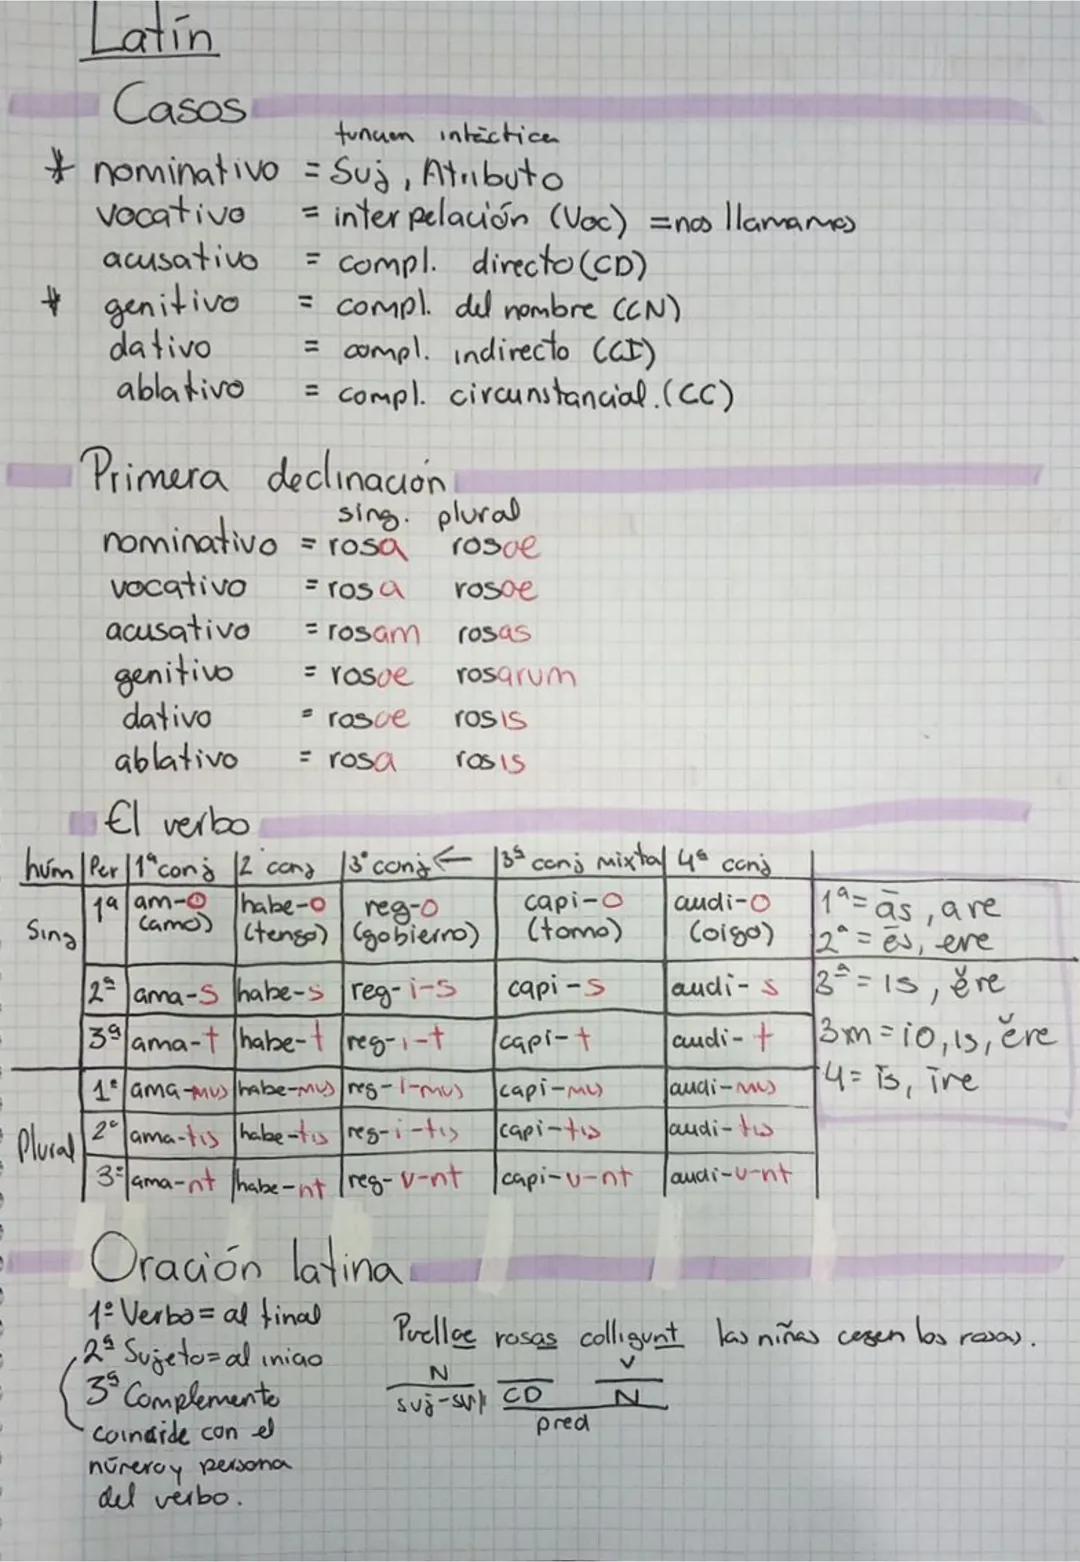 Latín
Casos
* nominativo = Suj, Atributo
vocativo = interpelación (Voc) = nos llamamos
acusativo = compl. directo (CD)
* genitivo = compl. del nombre (CN)
dativo = compl. indirecto (CI)
ablativo = compl. circunstancial. (CC)
Primera declinación
sing. plural
nominativo = rosa rosae
vocativo = rosa rosae
acusativo = rosam rosas
genitivo = rosae rosarum
dativo = rosae rosis
ablativo = rosa rosis
El verbo
núm Per 1ª conj 2 conj 3ª conj ← 3ª conj mixta 4ª conj
Sing 1ª am-o habe-o reg-o capi-o audi-o 1ª = ās, are
(amo) (tengo) (gobierno) (tomo) (oigo) 2ª = ēs, ere
2ª ama-s habe-s reg-i-s capi-s audi-s 3ª = is, ĕre
3ª ama-t habe-t reg-i-t capi-t audi-t 3m = io, is, ĕre
Plural 1ª ama-mus habe-mus reg-i-mus capi-mus audi-mus 4 = īs, īre
2ª ama-tis habe-tis reg-i-tis capi-tis audi-tis
3ª ama-nt habe-nt reg-u-nt capi-u-nt audi-u-nt
Oración latina
1º Verbo = al final
2ª Sujeto = al inicio
3ª Complemento
coincide con el
número y persona
del verbo.
Puellae rosas colligunt las niñas cogen las rosas.
N V
suj- CD N
pred